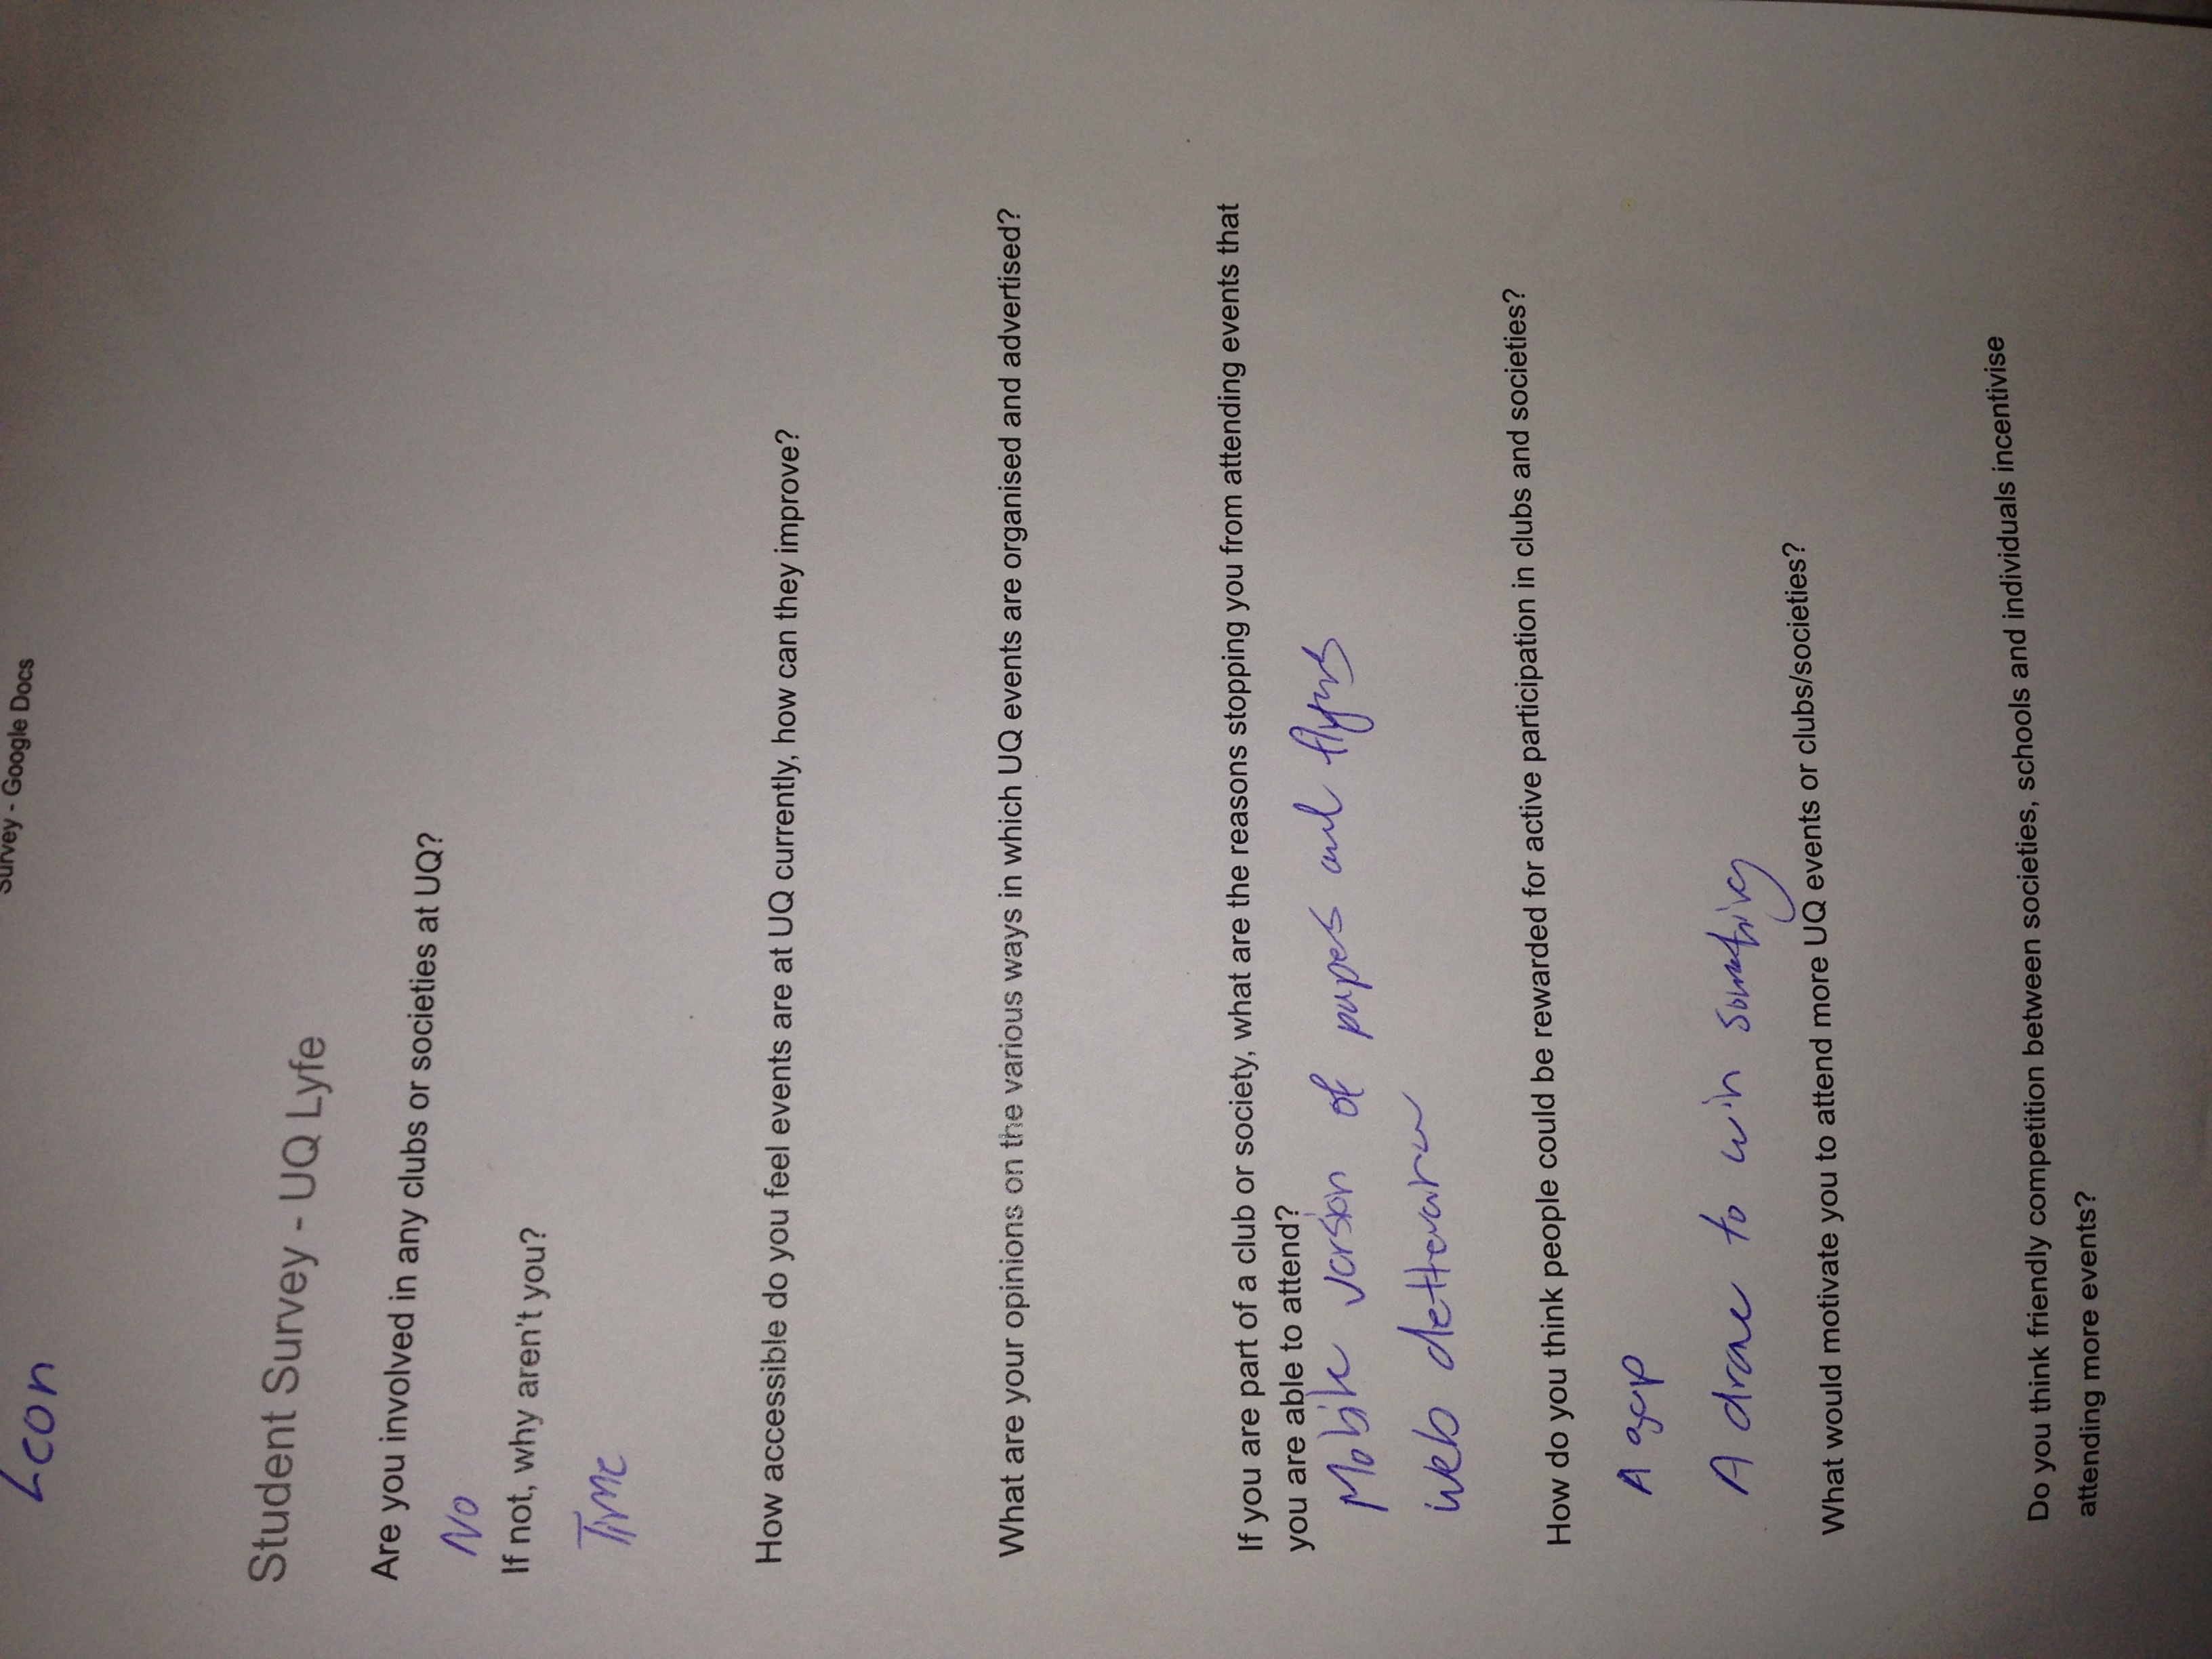 Survey - Google Docs
Leon
Student Survey - UQ Lyfe
Are you involved in any clubs or societies at UQ?
No
If not, why aren't you?
Time
How accessible do you feel events are at UQ currently, how can they improve?
What are your opinions on the various ways in which UQ events are organised and advertised?
If you are part of a club or society, what are the reasons stopping you from attending events that
you are able to attend?
Mobile version of papes and flyers
web
How do you think people could be rewarded for active participation in clubs and societies?
A
A to win something
What would motivate you to attend more UQ events or clubs/societies?
Do you think friendly competition between societies, schools and individuals incentivise
attending more events?